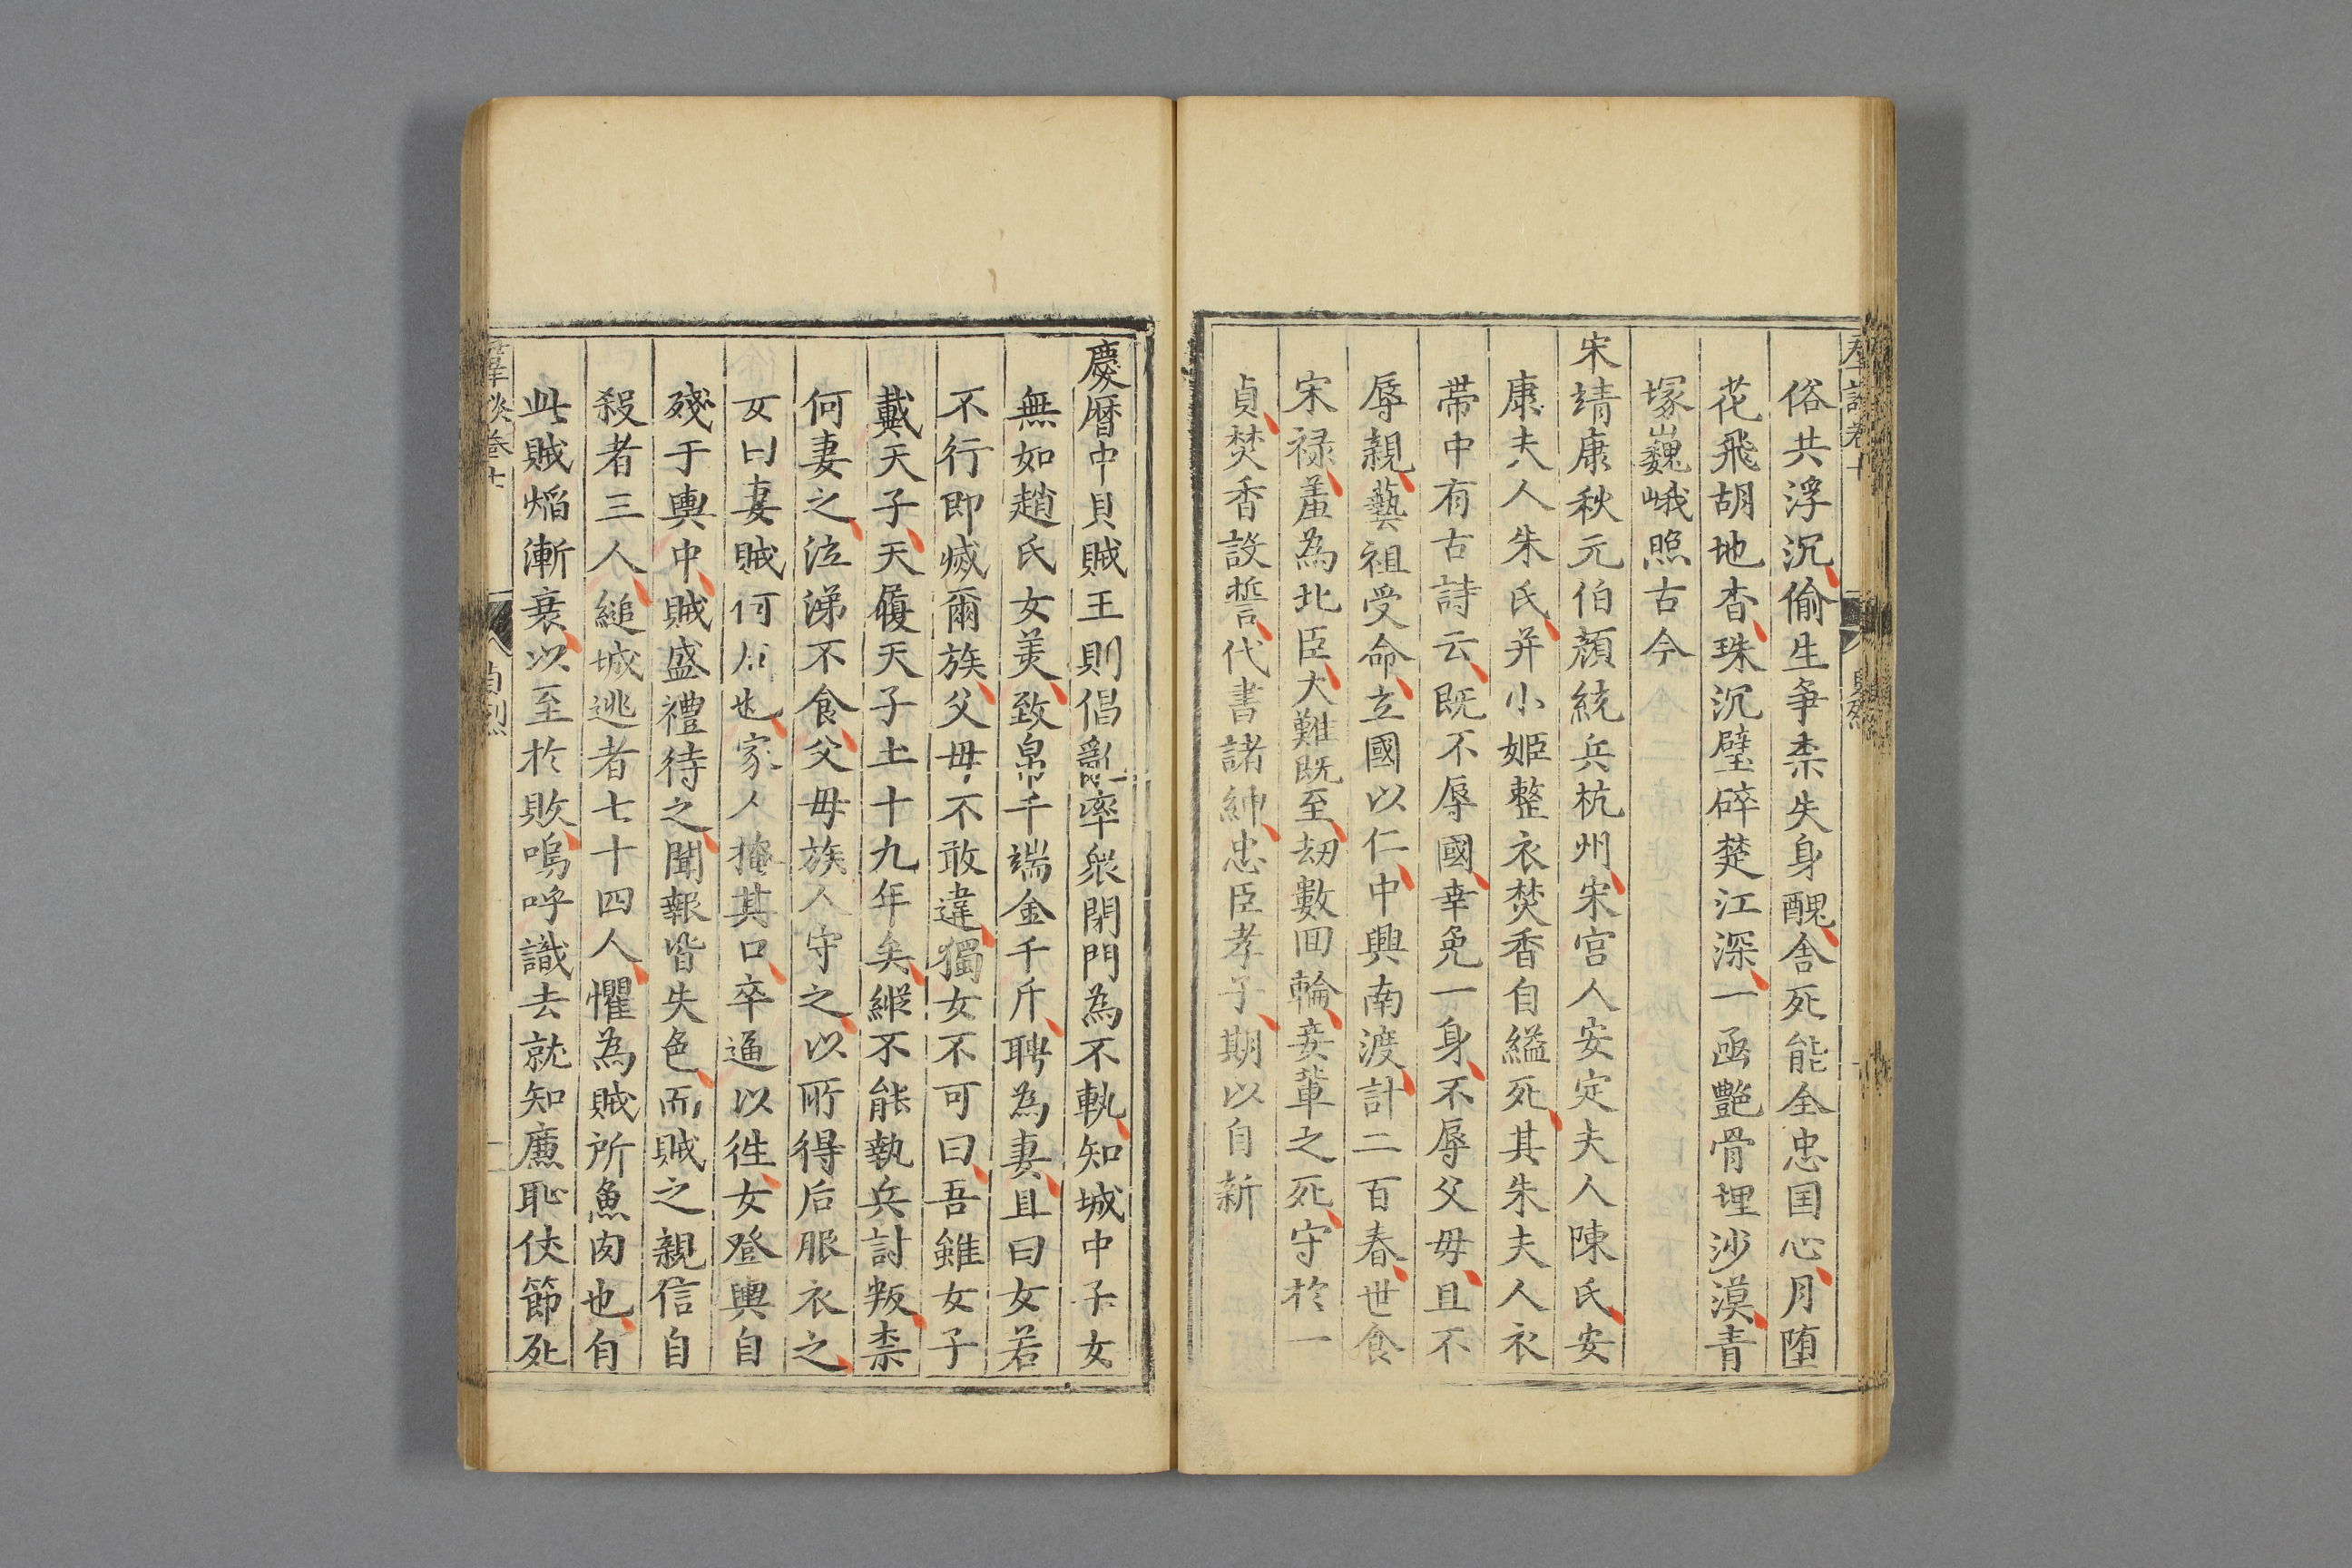 俗共浮沉偷生争柰失身醜舍死能全忠国心月堕
花飛胡地杳珠沉璧碎楚江深一函艶骨埋沙漠青
塚巍峨照古今
宋靖康秋元伯顏統兵杭州宋宫人安定夫人陳氏安
康夫人朱氏并小姬整衣焚香自縊死其朱夫人衣
帶中有古詩云既不辱國幸免一身不辱父毋且不
辱親藝祖受命立國以仁中興南渡計二百春世食
宋禄羞為北臣大難既至刼數囬輪妾輩之死守於一
貞焚香設誓代書諸紳忠臣孝子期以自新
慶曆中貝賊王則倡亂率衆閉門為不軌知城中子女
無如趙氏女美致帛千端金千斤聘為妻且曰女若
不行即滅爾族父毋不敢違獨女不可曰吾雖女子
戴天子天履天子土十九年矣縱不能執兵討叛柰
何妻之泣涕不食父毋族人守之以所得后服衣之
女曰妻賊何后也家人掩其口卒逼以徃女登輿自
殘于輿中賊盛禮待之聞報皆失色而賊之親信自
殺者三人縋城逃者七十四人懼為賊所魚肉也自
此賊焰漸衰以至於敗嗚呼識去就知廉恥伏節死
羣談卷十